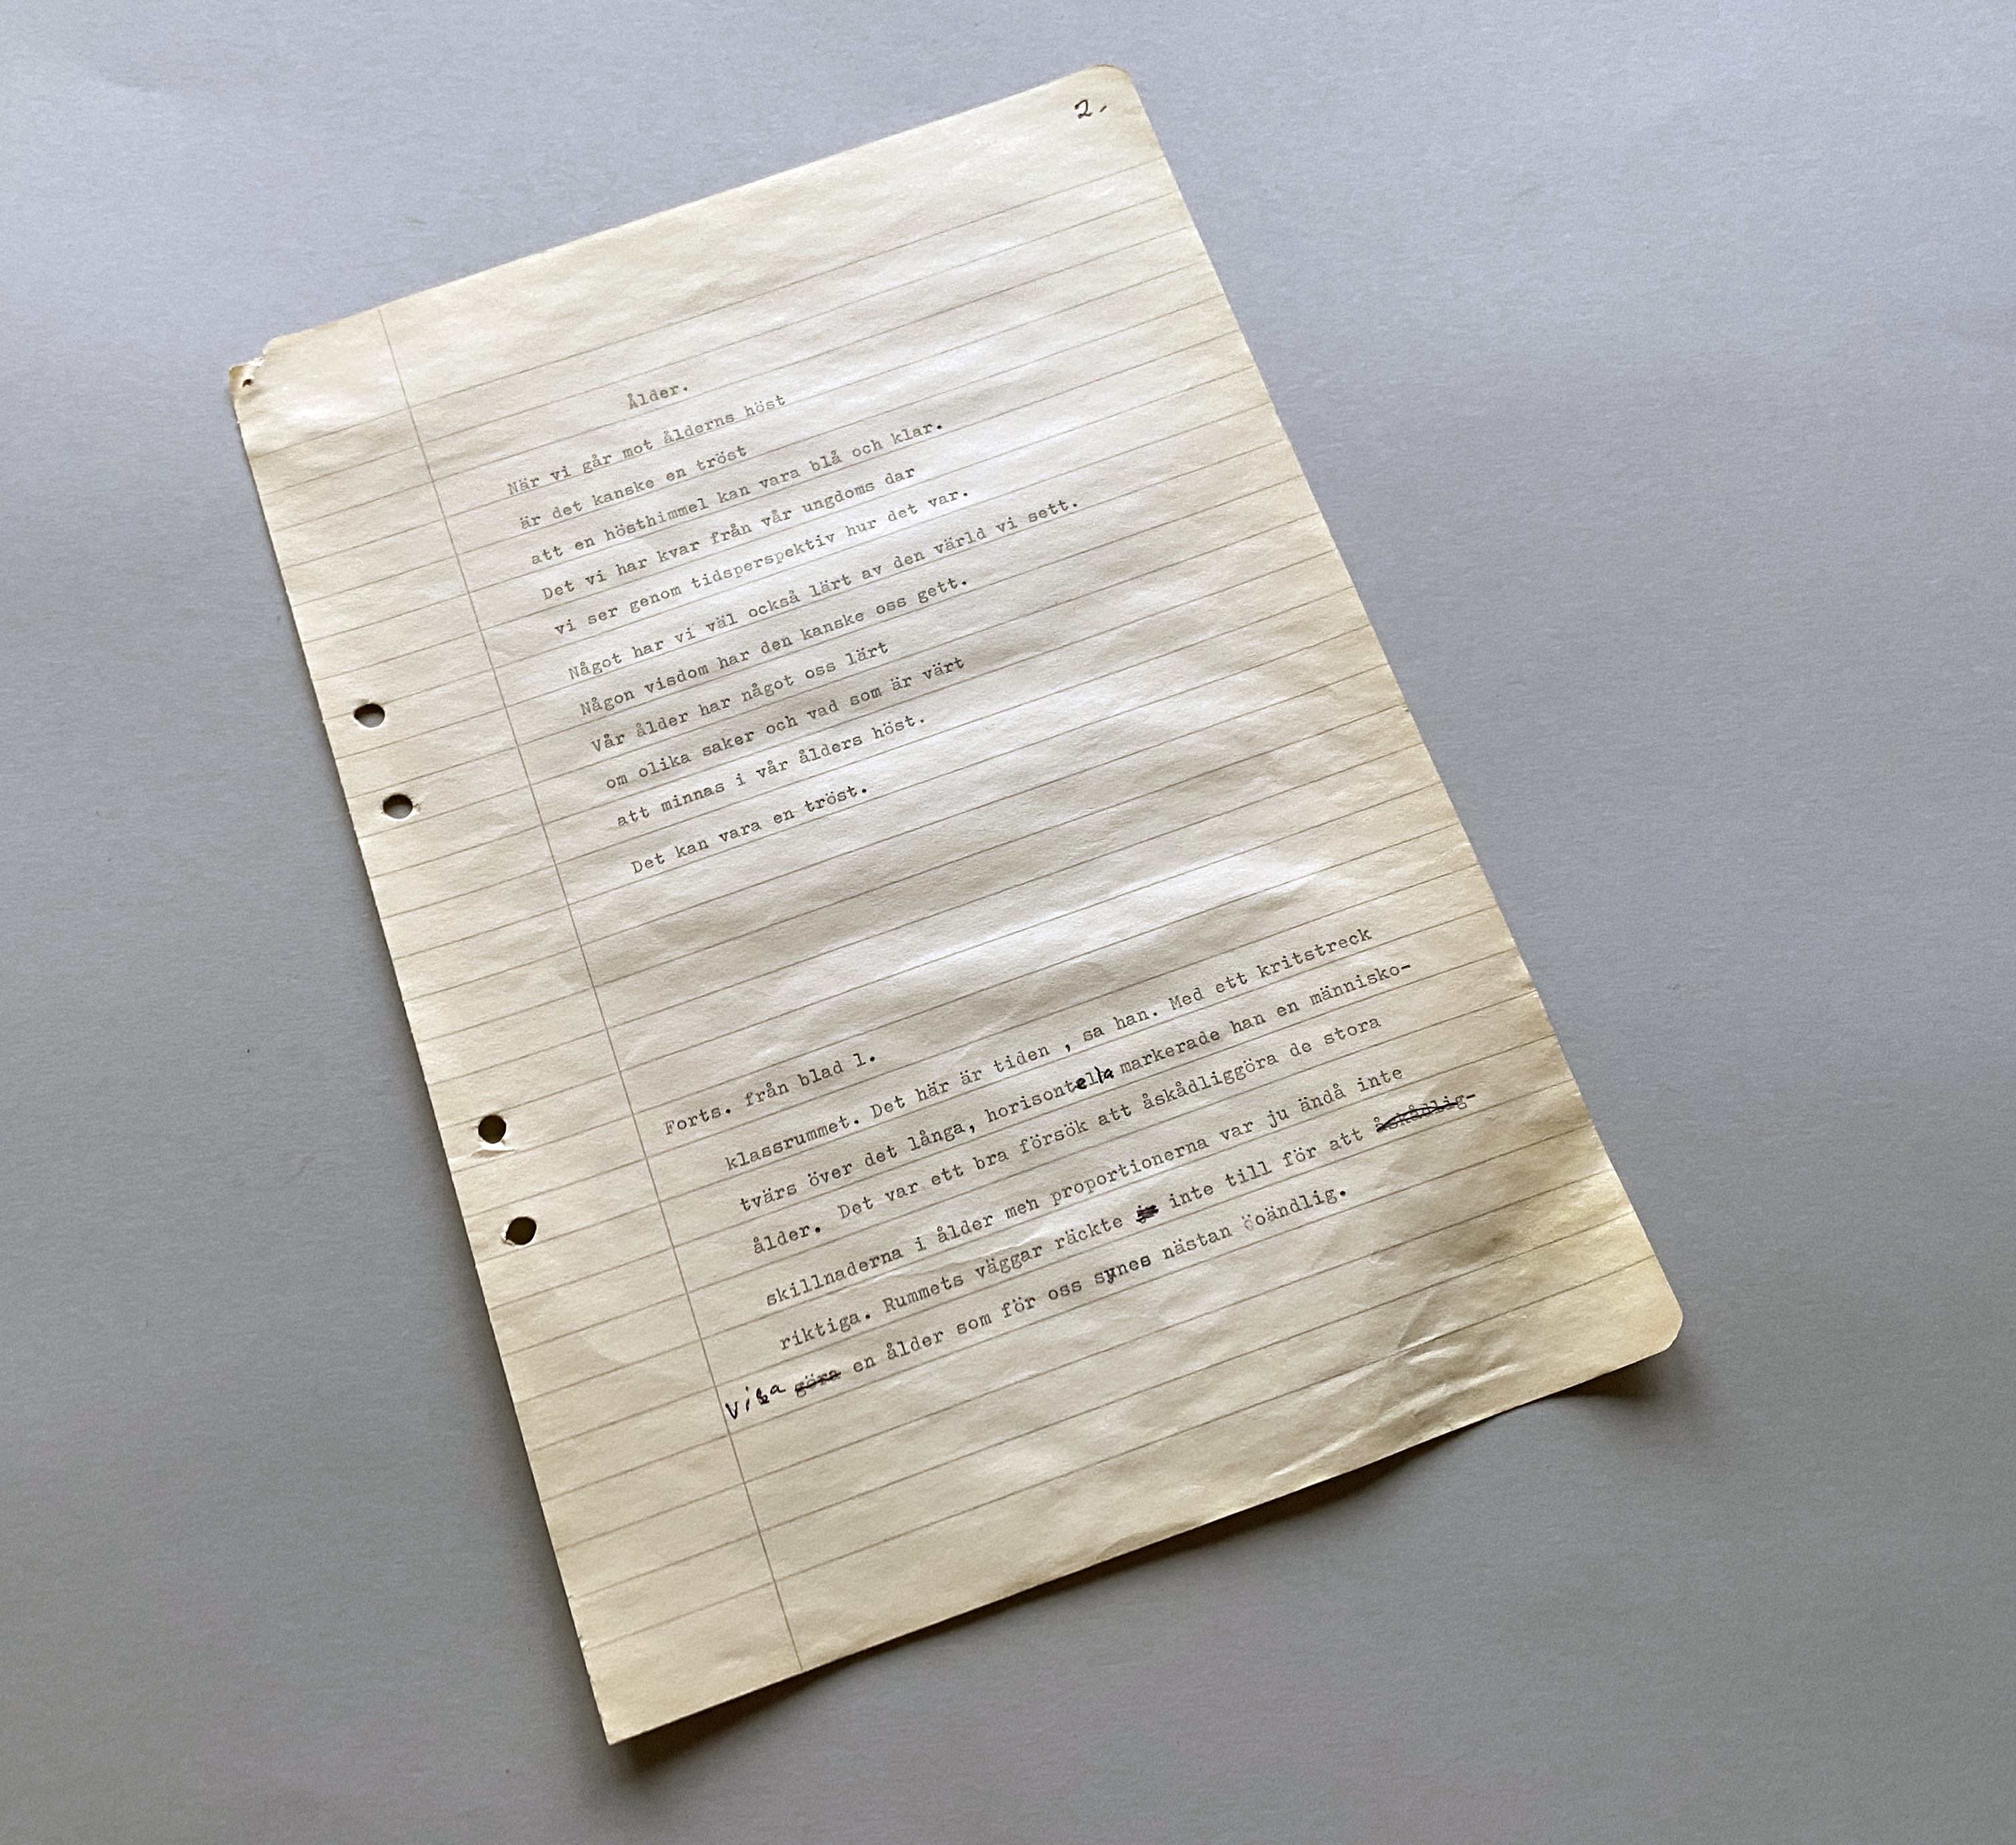 2.
Ålder.
När vi går mot ålderns höst
är det kanske en tröst
att en hösthimmel kan vara blå och klar.
Det vi har kvar från vår ungdoms dar
vi ser genom tidsperspektiv hur det var.
Något har vi väl också lärt av den värld vi sett.
Någon visdom har den kanske oss gett.
Vår ålder har något oss lärt
om olika saker och vad som är värt
att minnas i vår ålders höst.
Det kan vara en tröst.
Forts. från blad 1.
klassrummet. Det här är tiden , sa han. Med ett kritstreck
tvärs över det långa, horisontella markerade han en människo-
ålder. Det var ett bra försök att åskådliggöra de stora
skillnaderna i ålder men proportionerna var ju ändå inte
riktiga. Rummets väggar räckte inte till för att åskådlig-
visa göra en ålder som för oss synes nästan öoändlig.